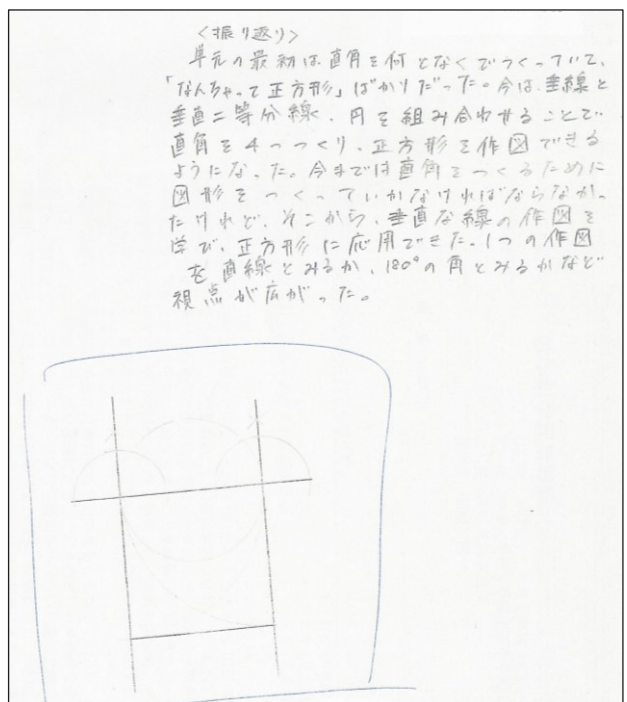 ＜振り返り＞
単元の最初は直角を何となくでつくっていて、
「なんちゃって正方形」ばかりだった。今は、垂線と
垂直二等分線、円を組み合わせることで
直角を4つつくり、正方形を作図できる
ようになった。今までは直角をつくるために
図形をつくっていかなければならなかっ
たけれど、そこから、垂直な線の作図を
学び、正方形に応用できた。1つの作図
を直線とみるか、180°の角とみるかなど
視点が広がった。